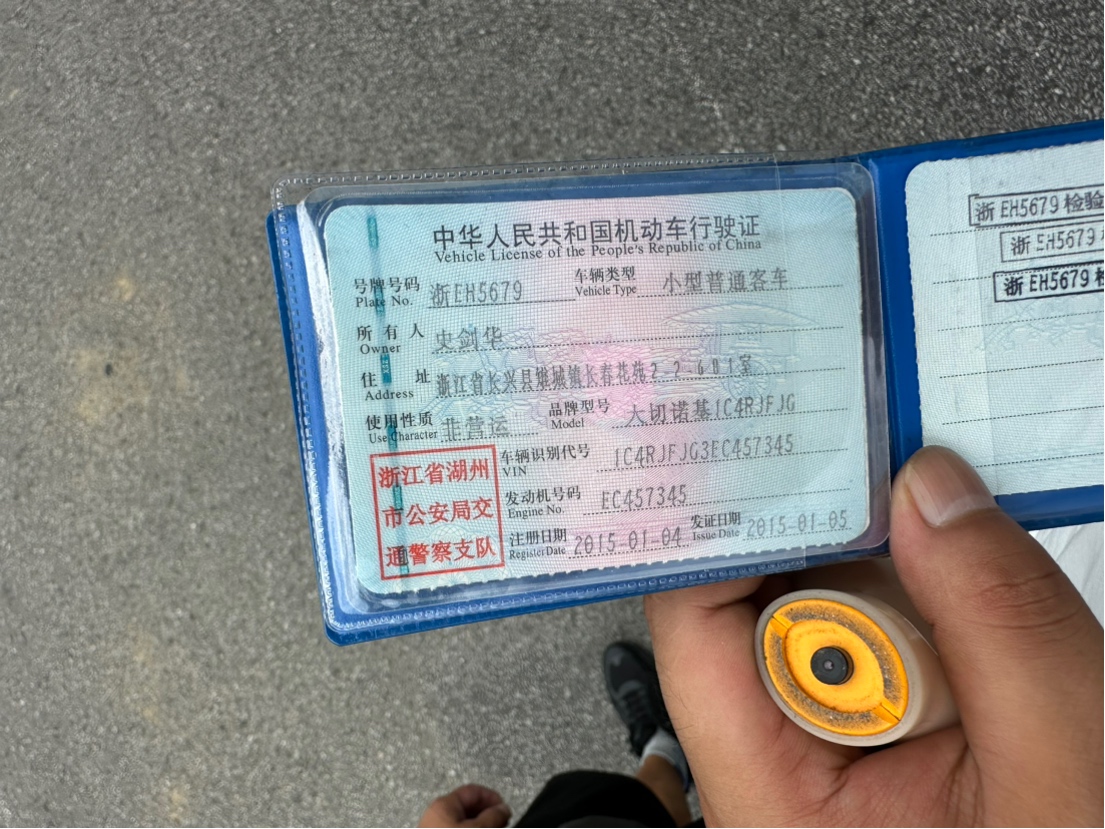 中华人民共和国机动车行驶证
Vehicle License of the People's Republic of China
号牌号码 浙EH5679 车辆类型 小型普通客车
Plate No. Vehicle Type
所有人 史剑华
Owner
住址 浙江省长兴县雉城镇长春花苑2-2-601室
Address
使用性质 非营运 品牌型号 大切诺基1C4RJFJG
Use Character Model
车辆识别代号 1C4RJFJG3EC457345
VIN
发动机号码 EC457345
Engine No.
注册日期 2015-01-04 发证日期 2015-01-05
Register Date Issue Date
浙江省湖州
市公安局交
通警察支队
浙EH5679检验
浙EH5679
浙EH5679